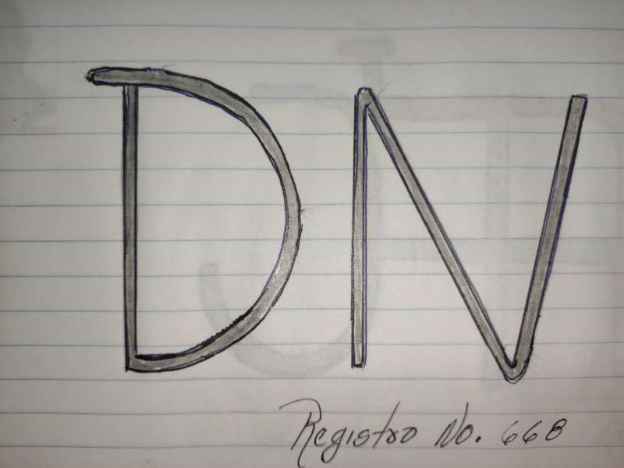 DN
Registro No. 668